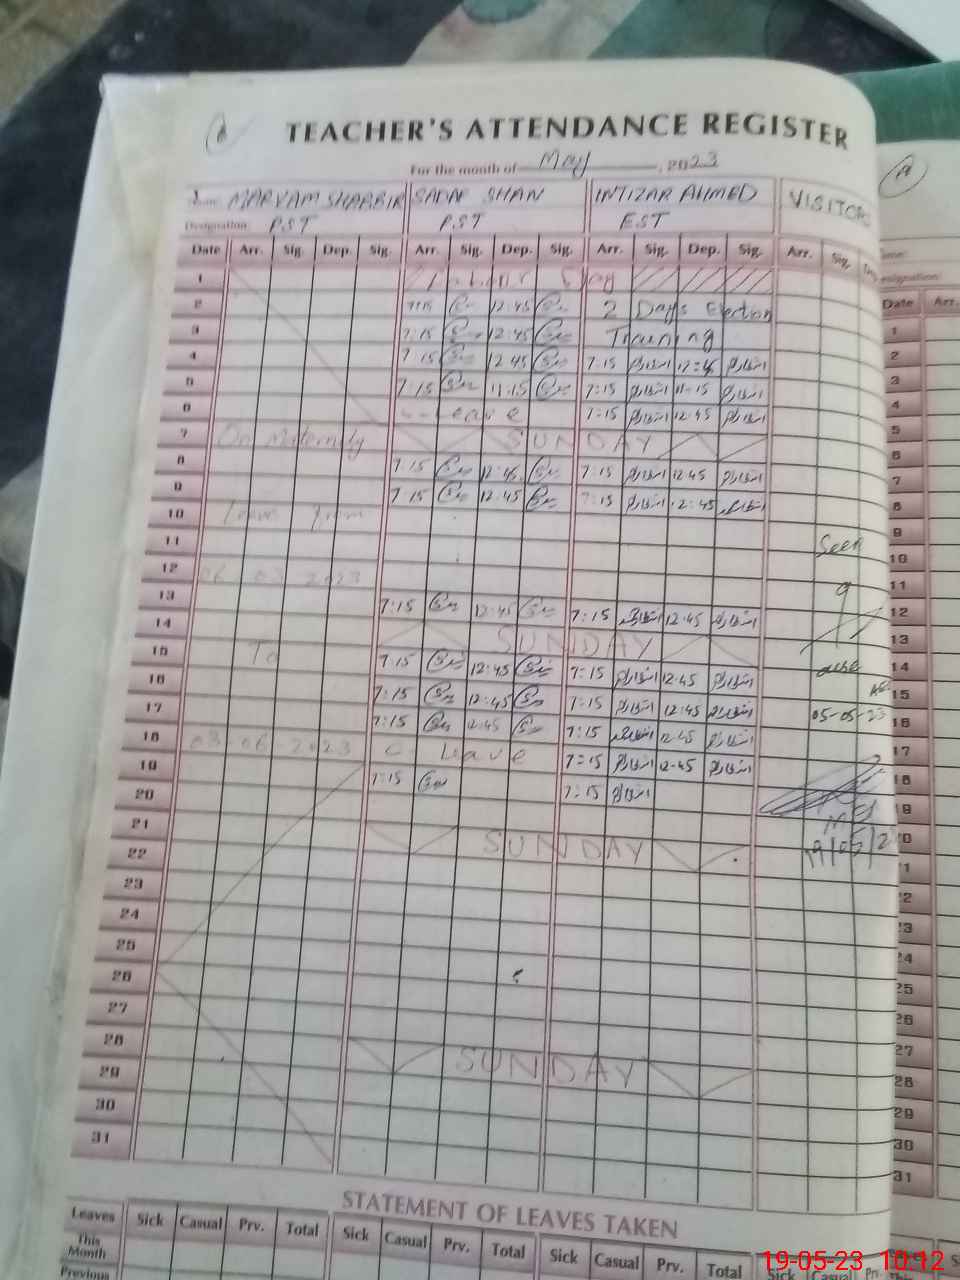 TEACHER'S ATTENDANCE REGISTER
For the month of May, 2023
MARYAM SHABBIR SADAF SHAN INTIZAR AHMED VISITORS
Designation: PST P.ST EST
Date Arr. Sig. Dep. Sig. Arr. Sig. Dep. Sig. Arr. Sig. Dep. Sig. Arr. Sig.
1 Labour Day
2 7:15 12:45 2 Days Election
3 7:15 12:45 Training
4 7 15 12 45 7:15 انتظار 12:45 انتظار
5 7 15 11:15 7:15 انتظار 11:15 انتظار
6 Leave 7:15 انتظار 12:45 انتظار
7 On Maternity SUNDAY
8 7:15 12:45 7:15 انتظار 12 45 انتظار
9 7 15 12:45 7:15 انتظار 12:45 انتظار
10 Leave from
11 Seen
12 06 03 2023
13 7:15 12:45 7:15 انتظار 12:45 انتظار
14 SUNDAY
15 To 7:15 12:45 7:15 انتظار 12:45 انتظار
16 7:15 12:45 7:15 انتظار 12:45 انتظار
17 7:15 12:45 7:15 انتظار 12:45 انتظار 05-05-23
18 03-06-2023 Leave 7:15 انتظار 12:45 انتظار
19 7:15 7:15 انتظار
20
21 SUNDAY 19/05/2
22
23
24
25
26
27
28 SUNDAY
29
30
31
STATEMENT OF LEAVES TAKEN
Leaves Sick Casual Prv. Total Sick Casual Prv. Total Sick Casual Prv. Total Sick Casual
This Month
Previous
Date Arr.
1
2
3
4
5
6
7
8
9
10
11
12
13
14
15
16
17
18
19
20
21
22
23
24
25
26
27
28
29
30
31
19-05-23 10:12